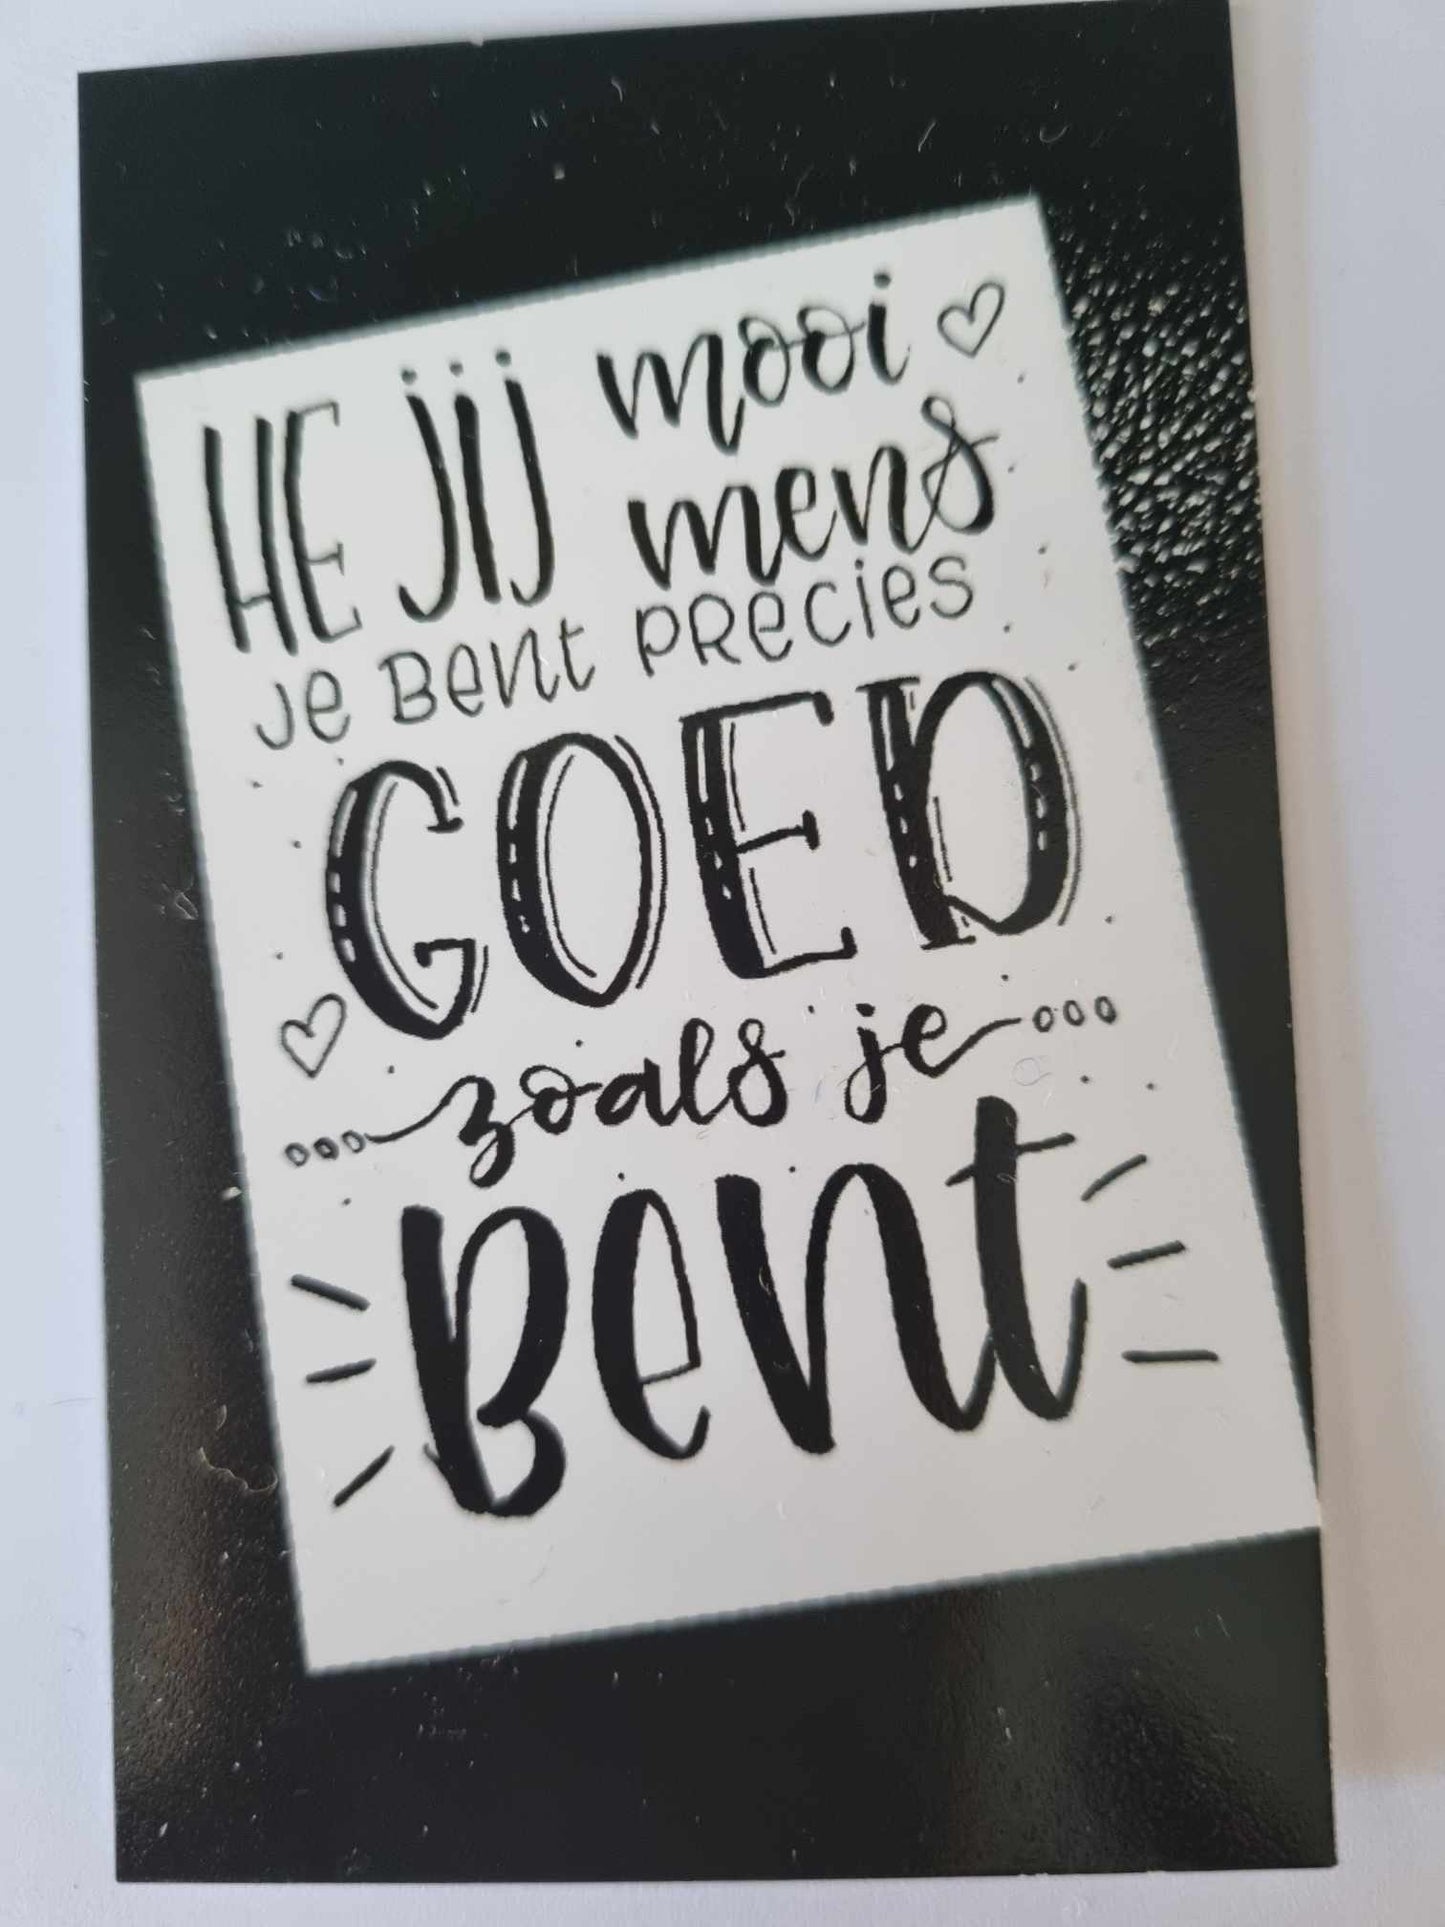 HE JIJ mooi
mens
Je Bent PRecies
GOED
zoals je
Bent